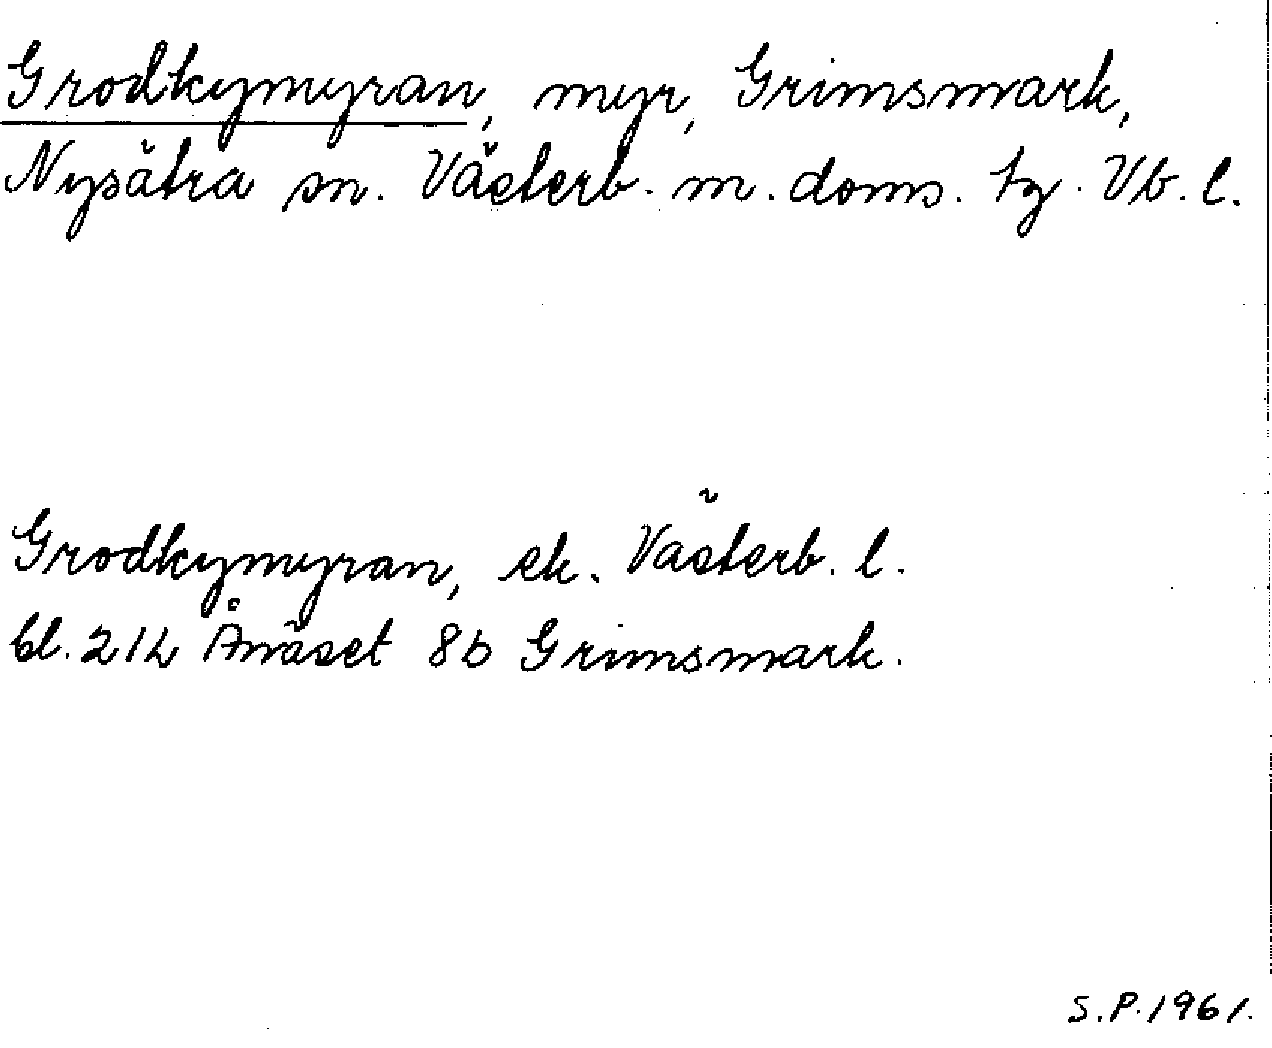 Grodkymyran, myr, Grimsmark,
Nysätra sn. Västerb. m. doms. tg. Vb. l.
Grodkymyran, ek. Västerb. l.
bl. 21L Ånäset 8b Grimsmark.
S.P. 1961.